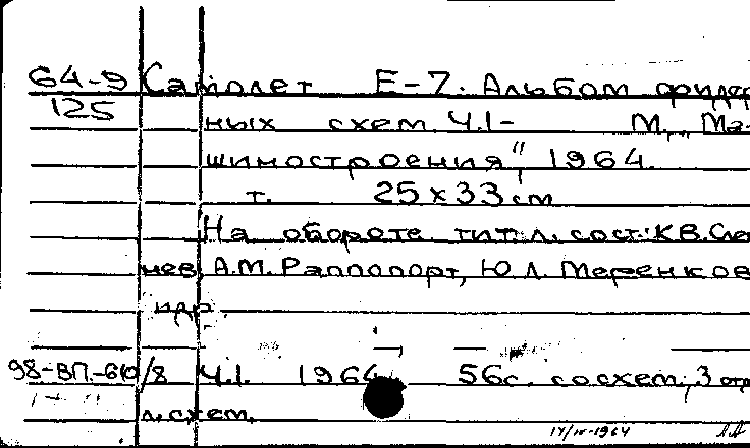 64-9 Самолет Е-7. Альбом фидер
125
ных схем. Ч.1- М., "Ма-
шиностроения", 1964.
т. 25×33 см
На обороте тит. л. сост.: К.В.
нев, А.М. Раппопорт, Ю.Л. Меренков
и др.
98-ВП-610/8 Ч.1. 1964. 56с. со схем., 3 отд.
л. схем.